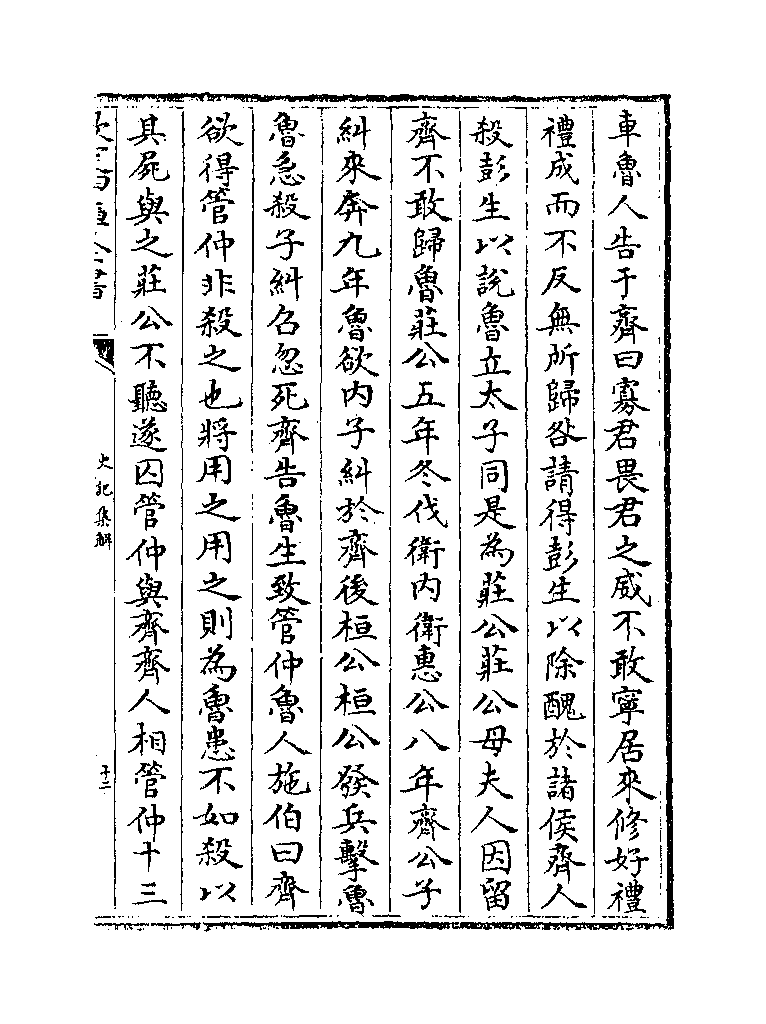 車魯人告于齊曰寡君畏君之威不敢寧居來修好禮
禮成而不反無所歸咎請得彭生以除醜於諸侯齊人
殺彭生以說魯立太子同是為莊公莊公母夫人因留
齊不敢歸魯莊公五年冬伐衛內衛惠公八年齊公子
糾來奔九年魯欲內子糾於齊後桓公桓公發兵擊魯
魯急殺子糾召忽死齊告魯生致管仲魯人施伯曰齊
欲得管仲非殺之也將用之用之則為魯患不如殺以
其屍與之莊公不聽遂囚管仲與齊齊人相管仲十三
史記集解
十二